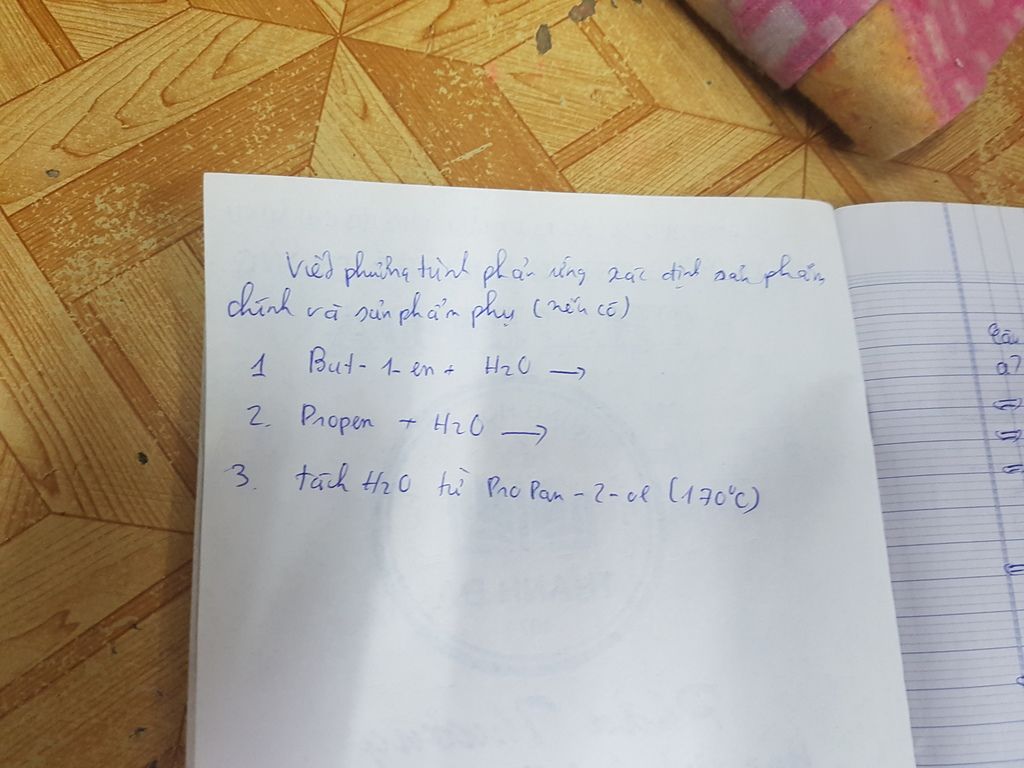 Viết phương trình phản ứng xác định sản phẩm
chính và sản phẩm phụ (nếu có)
1 But-1-en + H2O →
2. Propen + H2O →
3. tách H2O từ ProPan-2-ol (170°C)
Câu
a?